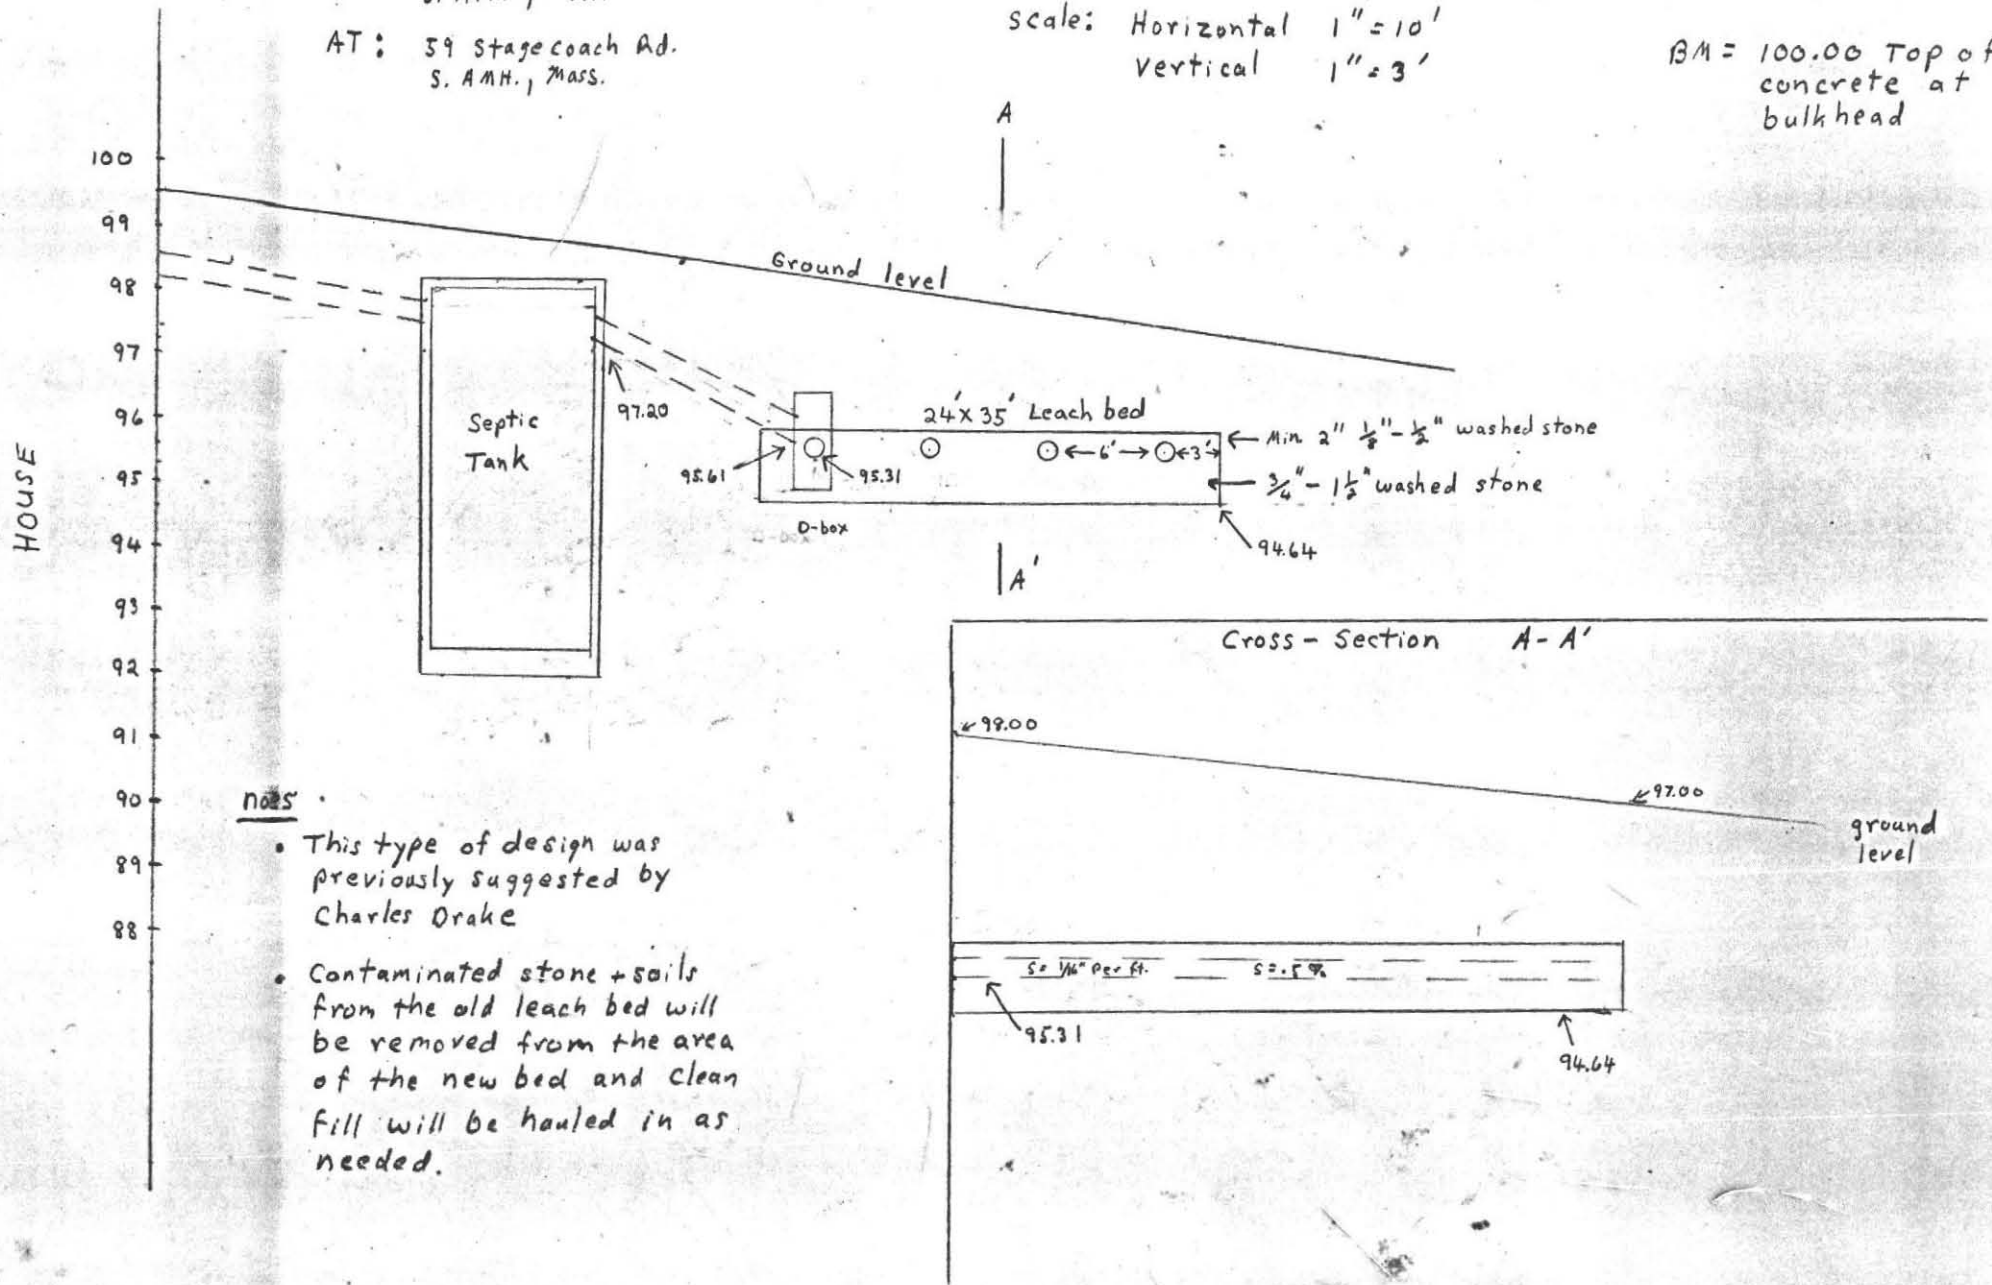 AT: 59 Stagecoach Rd.
S. AMH., Mass.
scale: Horizontal 1" = 10'
vertical 1" = 3'
BM = 100.00 Top of
concrete at
bulkhead
A
100
99
98
97
96
95
94
93
92
91
90
89
88
HOUSE
Ground level
Septic
Tank
97.20
24' x 35' Leach bed
6'
3'
Min 2" 1/8" - 1/2" washed stone
3/4" - 1 1/2" washed stone
95.61
95.31
D-box
94.64
A'
Cross-Section A-A'
98.00
97.00
ground
level
S= 1/16" Per ft. S=.5%
95.31
94.64
• This type of design was
previously suggested by
Charles Drake
• Contaminated stone + soils
from the old leach bed will
be removed from the area
of the new bed and clean
fill will be hauled in as
needed.